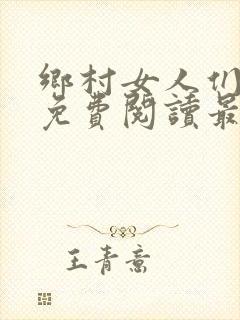 鄉村女人们
免費閱讀最
王青意